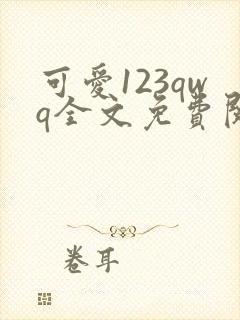 可愛123qw
q全文免費閱
卷耳